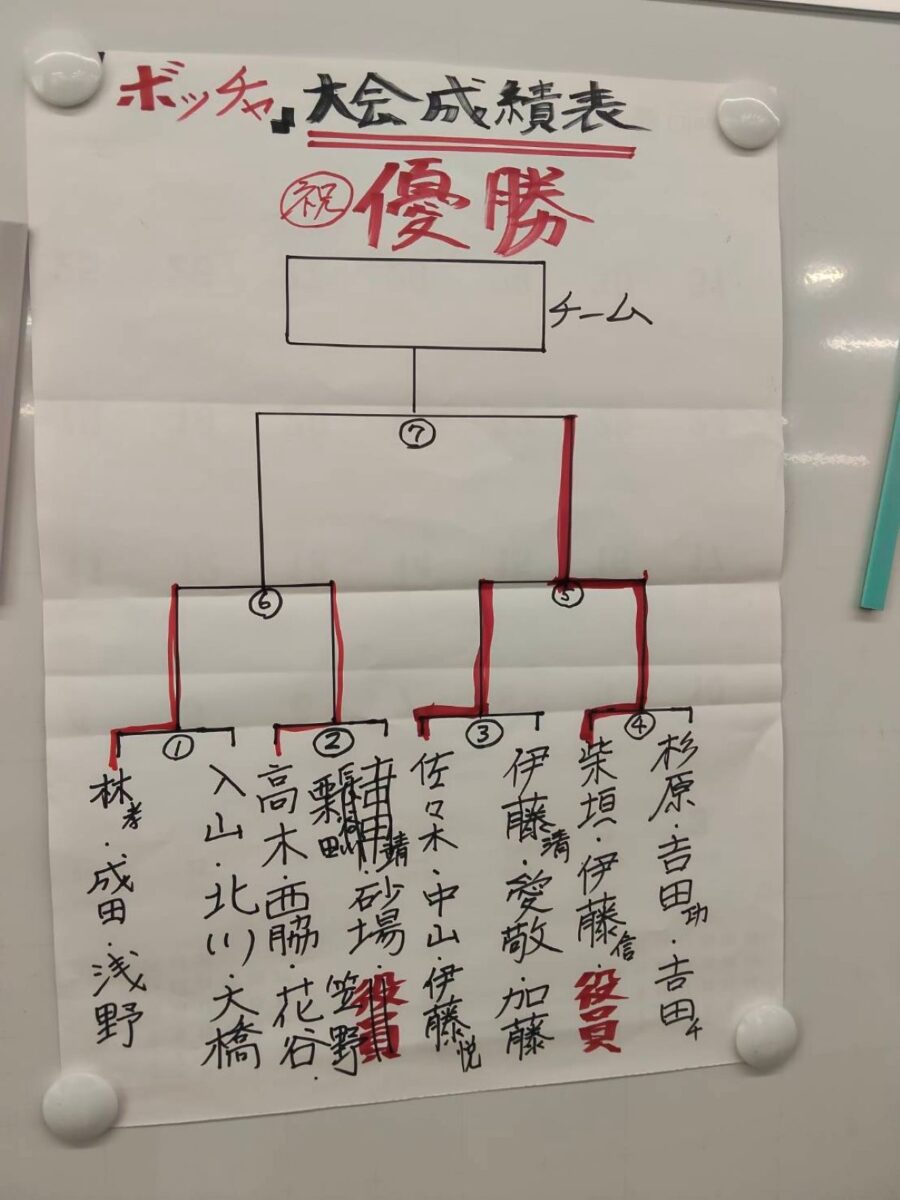 ボッチャ大会成績表
㊗優勝
チーム
⑦
⑥
⑤
①
②
③
④
林孝・成田・浅野
入山・北川・大橋
高木・西脇・花谷・
砂場・
笠野
役員
佐々木・中山・伊藤悦
伊藤清・愛敬・加藤
柴垣・伊藤信・役員
杉原・吉田功・吉田チ